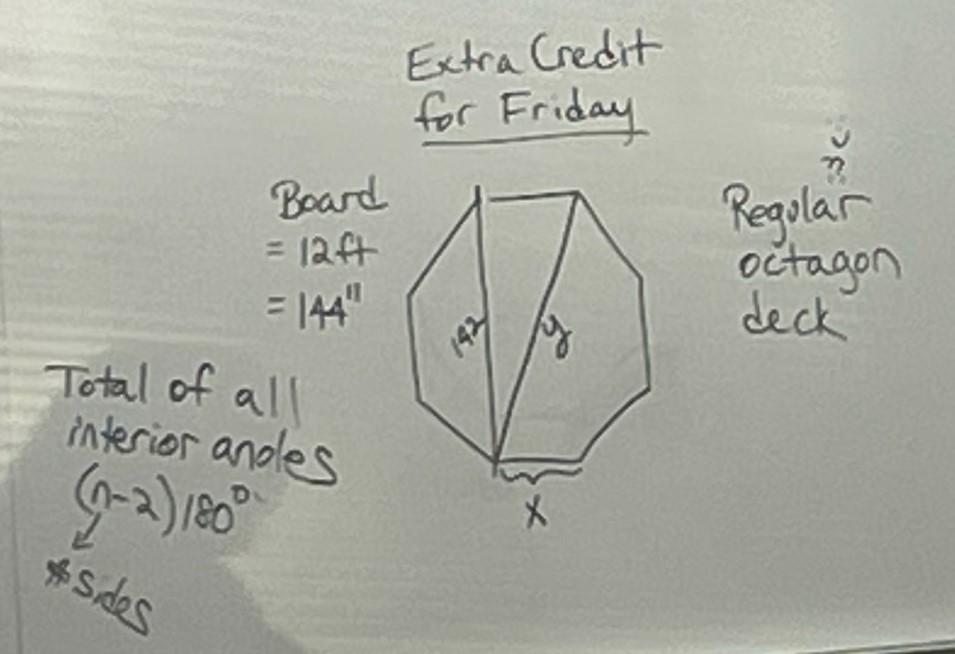 Extra Credit
for Friday
Board
= 12ft
= 144"
Regular
octagon
deck
142
y
x
Total of all
interior angles
(n-2)180°
# sides